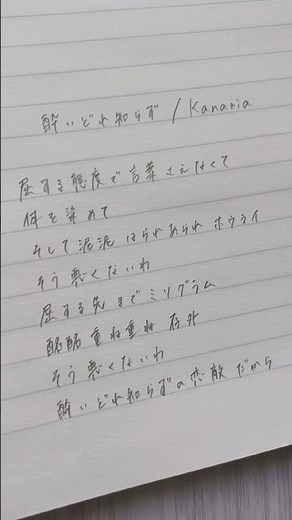 酔いどれ知らず / Kanaria
屈する態度で言葉さえなくて
体を染めて
そして泥泥 はられあられ ホウライ
そう悪くないわ
屈する先までミリグラム
酩酩 重ね重ね 存外
そう悪くないわ
酔いどれ知らずの恋敵だから